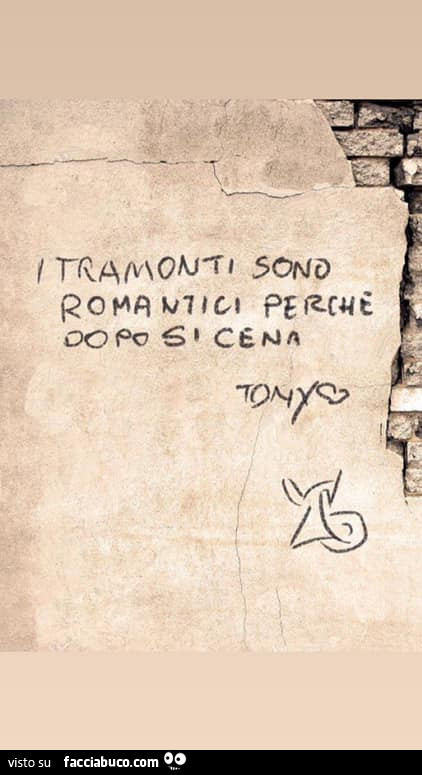 I TRAMONTI SONO
ROMANTICI PERCHÈ
DOPO SI CENA
TONY
visto su facciabuco.com